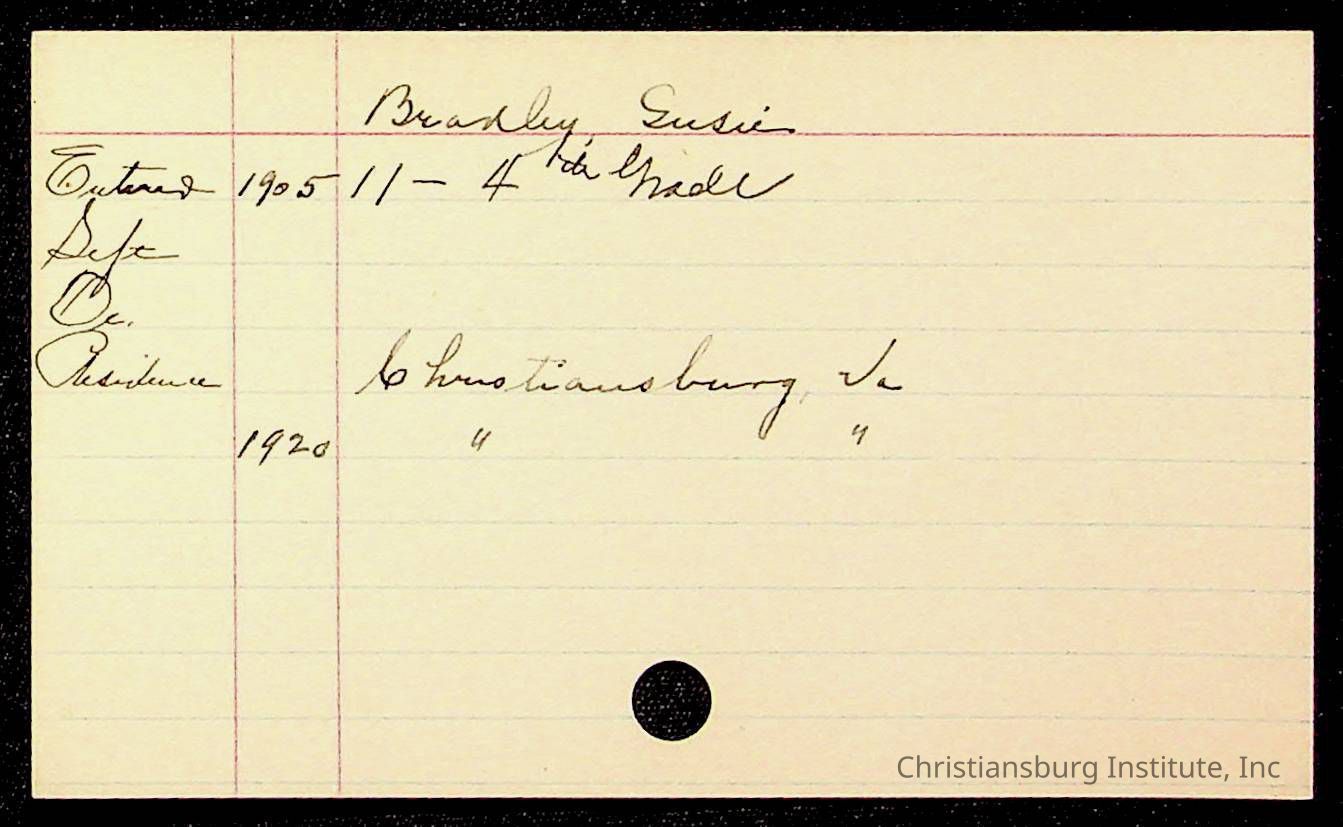 Bradley, Susie
Entered 1905 11 - 4th Grade
Left
Oc.
Residence Christiansburg, Va
1920 " "
Christiansburg Institute, Inc